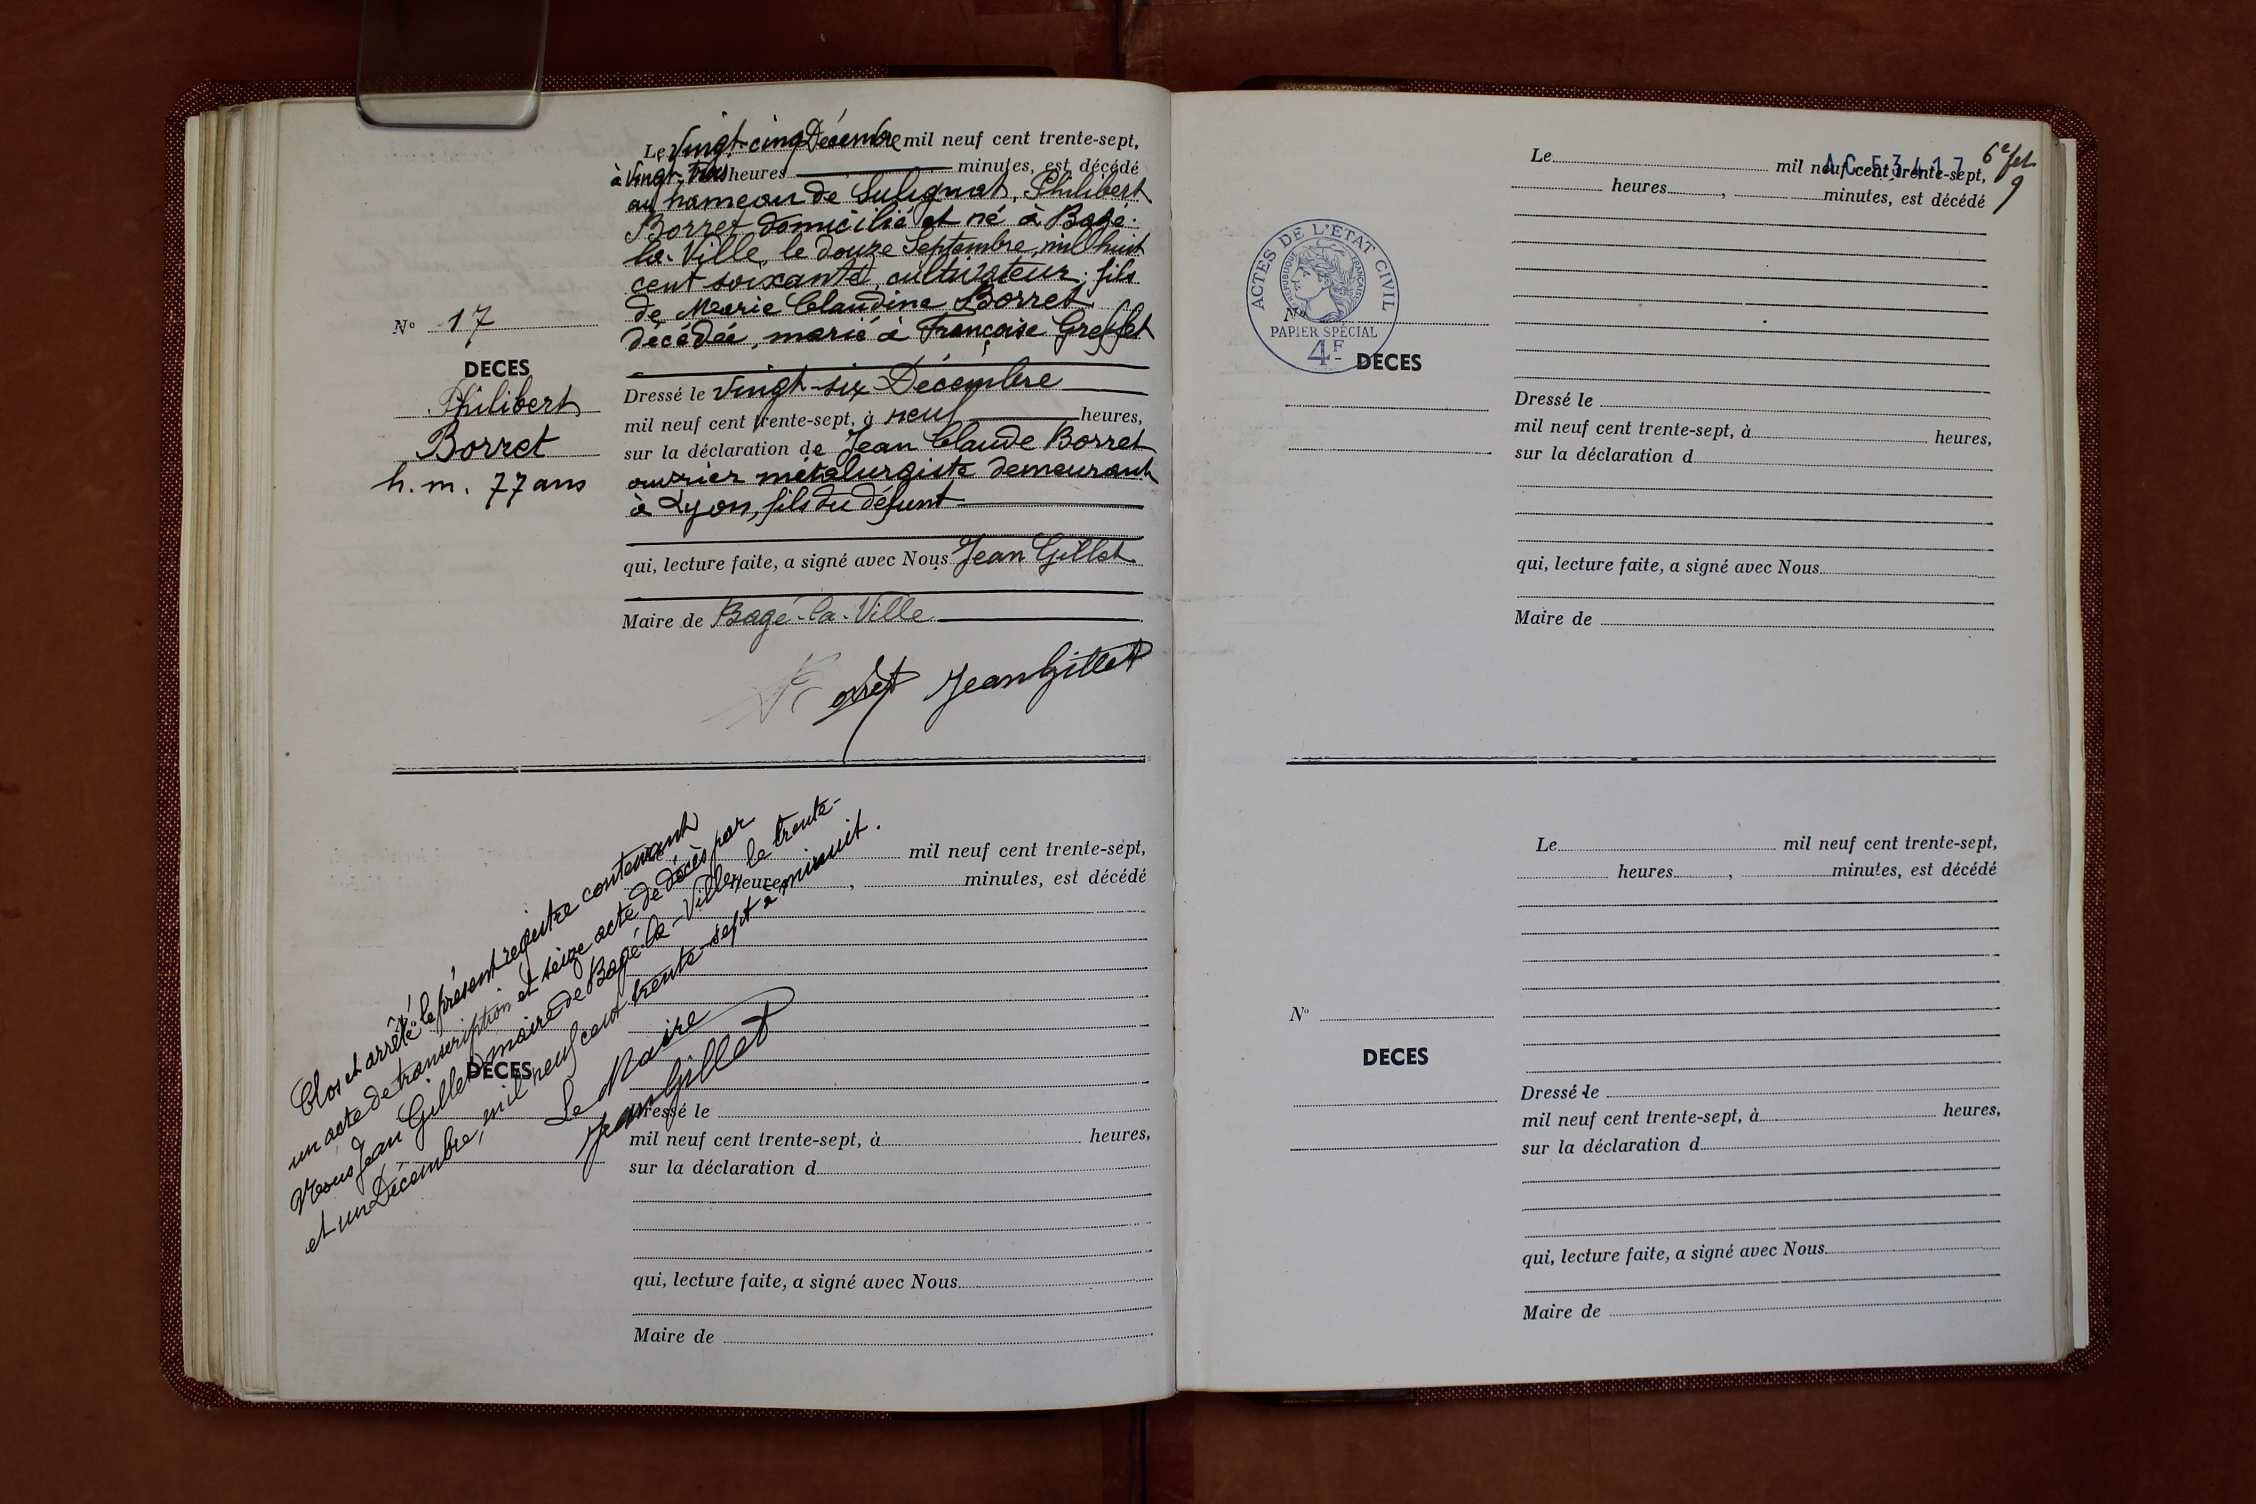 Le vingt-cinq Décembre mil neuf cent trente-sept,
à vingt-trois heures minutes, est décédé
au hameau de Sulignat, Philibert
Borret domicilié et né à Bagé-
la-Ville, le douze Septembre, mil huit
cent soixante, cultivateur, fils
de Marie Claudine Borret
décédée, marié à Françoise Greffet
N° 17
DECES
Philibert
Borret
h. m. 77 ans
Dressé le vingt-six Décembre
mil neuf cent trente-sept, à neuf heures,
sur la déclaration de Jean Claude Borret
ouvrier métalurgiste demeurant
à Lyon, fils du défunt
qui, lecture faite, a signé avec Nous Jean Gillet
Maire de Bagé-la-Ville
Jean Gillet
Clos et arrêté le présent registre contenant
un acte de transcription et seize acte de décès par
Nous Jean Gillet maire de Bagé-la-Ville, le trente-
et un Décembre, mil neuf cent trente-sept à minuit.
Le Maire
Jean Gillet
mil neuf cent trente-sept,
heures, minutes, est décédé
DECES
Dressé le
mil neuf cent trente-sept, à heures,
sur la déclaration d
qui, lecture faite, a signé avec Nous
Maire de
6e fet
9
AC 53417
Le mil neuf cent trente-sept,
heures, minutes, est décédé
ACTES DE L'ETAT CIVIL
REPUBLIQUE FRANÇAISE
PAPIER SPÉCIAL
4F
N°
DECES
Dressé le
mil neuf cent trente-sept, à heures,
sur la déclaration d
qui, lecture faite, a signé avec Nous
Maire de
Le mil neuf cent trente-sept,
heures, minutes, est décédé
N°
DECES
Dressé le
mil neuf cent trente-sept, à heures,
sur la déclaration d
qui, lecture faite, a signé avec Nous
Maire de